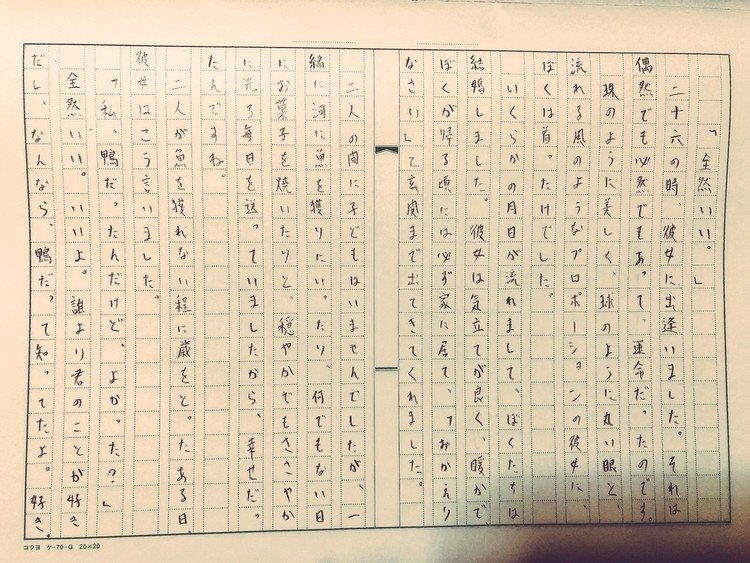 「全然いい。」
二十六の時、彼女に出逢いました。それは
偶然でも必然でもあって、運命だったのです。
珠のように美しく、球のように丸い眼と、
流れる風のようなプロポーションの彼女に、
ぼくは首ったけでした。
いくらかの月日が流れまして、ぼくたちは
結婚しました。彼女は気立てが良く、暖かで、
ぼくが帰る頃には必ず家に居て、「おかえり
なさい」と玄関まで出てきてくれました。
二人の間に子どもはいませんでしたが、一
緒に河に魚を獲りにいったり、何でもない日
にお菓子を焼いたりと、穏やかでもささやか
に光る毎日を送っていましたから、幸せだっ
たんですね。
二人が魚を獲れない程に歳をとったある日、
彼女はこう言いました。
「私、鴨だったんだけど、よかった？」
全然いい。いいよ。誰より君のことが好き
だし、なんなら、鴨だって知ってたよ。好き。
コクヨ ケ-70-G 20×20